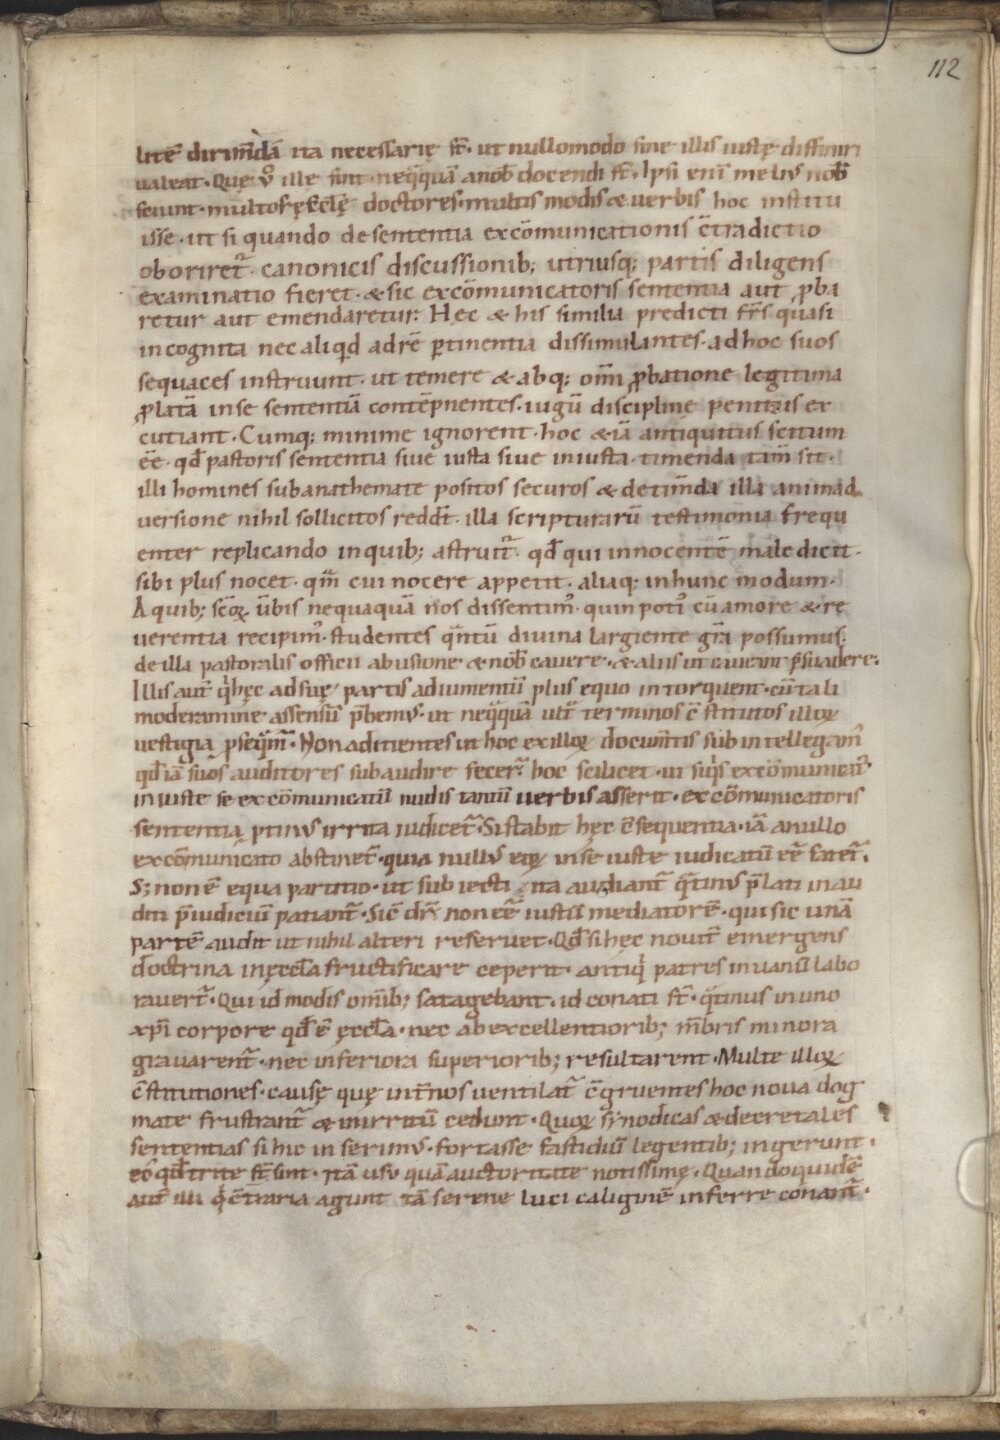 112
litē dirim̄dā ita necessarię st̄· ut nullomodo sine illis iustę diffiniri
ualeat· Quę ỽ illę sint· neq̄quā anob̄ docendi st̄· Ipsi eni melius nob̄
sciunt· multos ęccl̄ę doctores· multis modis & uerbis hoc institu
isse· ut si quando de sententia excōmunicationis c̄tradictio
oboriret᷑· canonicis discussionib; utriusq; partis diligens
examinatio fieret· & sic excōmunicatoris sententia aut ꝓba
retur aut emendaretur: Hęc & his similia predicti fr̄s quasi
incognita nec aliqid adrē ꝑtinentia dissimulantes· ad hoc suos
sequaces instruunt· ut temere & absq; omī ꝓbatione legitima
ꝓlatā inse sententiā contēpnentes· iugū discipline penitus ex
cutiant· Cumq; minime ignorent· hoc & iā antiquitus scitum
eē· qd̄ pastoris sententia siue iusta siue iniusta· timenda tam̄ sit·
illi homines subanathemate positos securos & detim̄da illa animad
uersione nihil sollicitos redd̄t· illa scripturarū testimonia frequ
enter replicando inquib; astruit᷑· qd̄ qui innocentē maledicit·
sibi plus nocet· qm̄ cui nocere appetit· aliaq; inhunc modum·
A quib; scōꝝ ūbis nequaquā nos dissentim᷒· quin poti᷒ cū amore & re
uerentia recipim᷒· studentes q̄ntū diuina largiente gr̄a possumus·
de illa pastoralis officii abusione & nob̄ cauere· & aliis ut caueant ꝑsuadere·
Illis aut̄ q̇ hęc ad suę partis adiumentū plus equo intorquent· cū tali
moderamine assensū p̄bemus· ut neq̄quā ult̄ terminos c̄stitutos illoꝝ
uestigia ꝓseqm̄· Non adicientes ut hoc ex illoꝝ docum̄tis subintellegam᷒
qd̄ iā suos auditores subaudire fecer̄· hoc scilicet· ut siq̇s excōmunicat᷒
iniuste se excōmunicatū nudis tantū uerbis asserit· excōmunicatoris
sententia ptinus irrita iudicet᷑· Si stabit hęc c̄sequentia· iā anullo
excōmunicato abstinet᷑· quia nullus eoꝝ inse iuste iudicatū eē fatet᷑·
S; non ē equa partitio· ut subiecti ita audiant᷑ q̄tinus p̄lati inau
diti p̄iudiciū patiant᷑· Sic dr̄ non eē iustū mediatorē· qui sic unā
partē audit ut nihil alteri reseruet· Qd̄ si hęc nouit᷑ emergens
doctrina inęccl̄a fructificare ceperit· antiq̇ patres inuanū labo
rauer̄· Qui id modis omib; satagebant· id conati st̄· q̄tinus in uno
xp̄i corpore qd̄ ē ęccl̄a· nec ab excellentiorib; m̄bris minora
grauarent᷑· nec inferiora superiorib; resultarent· Multe illoꝝ
c̄stitutiones· causę quę int̄ nos uentilat᷑ c̄gruentes hoc noua dog
mate frustrant᷑ & inirritū cedunt· Quoꝝ synodicas & decretales
sententias si hic inserimus· fortasse fastidiū legentib; ingerunt·
eo qd̄ trite st̄ sint· Tā usu quā auctoritate notissimę· Quandoquidē
aut̄ illi q̇ c̄traria agunt tā serene luci caliginē inferre conant᷑·